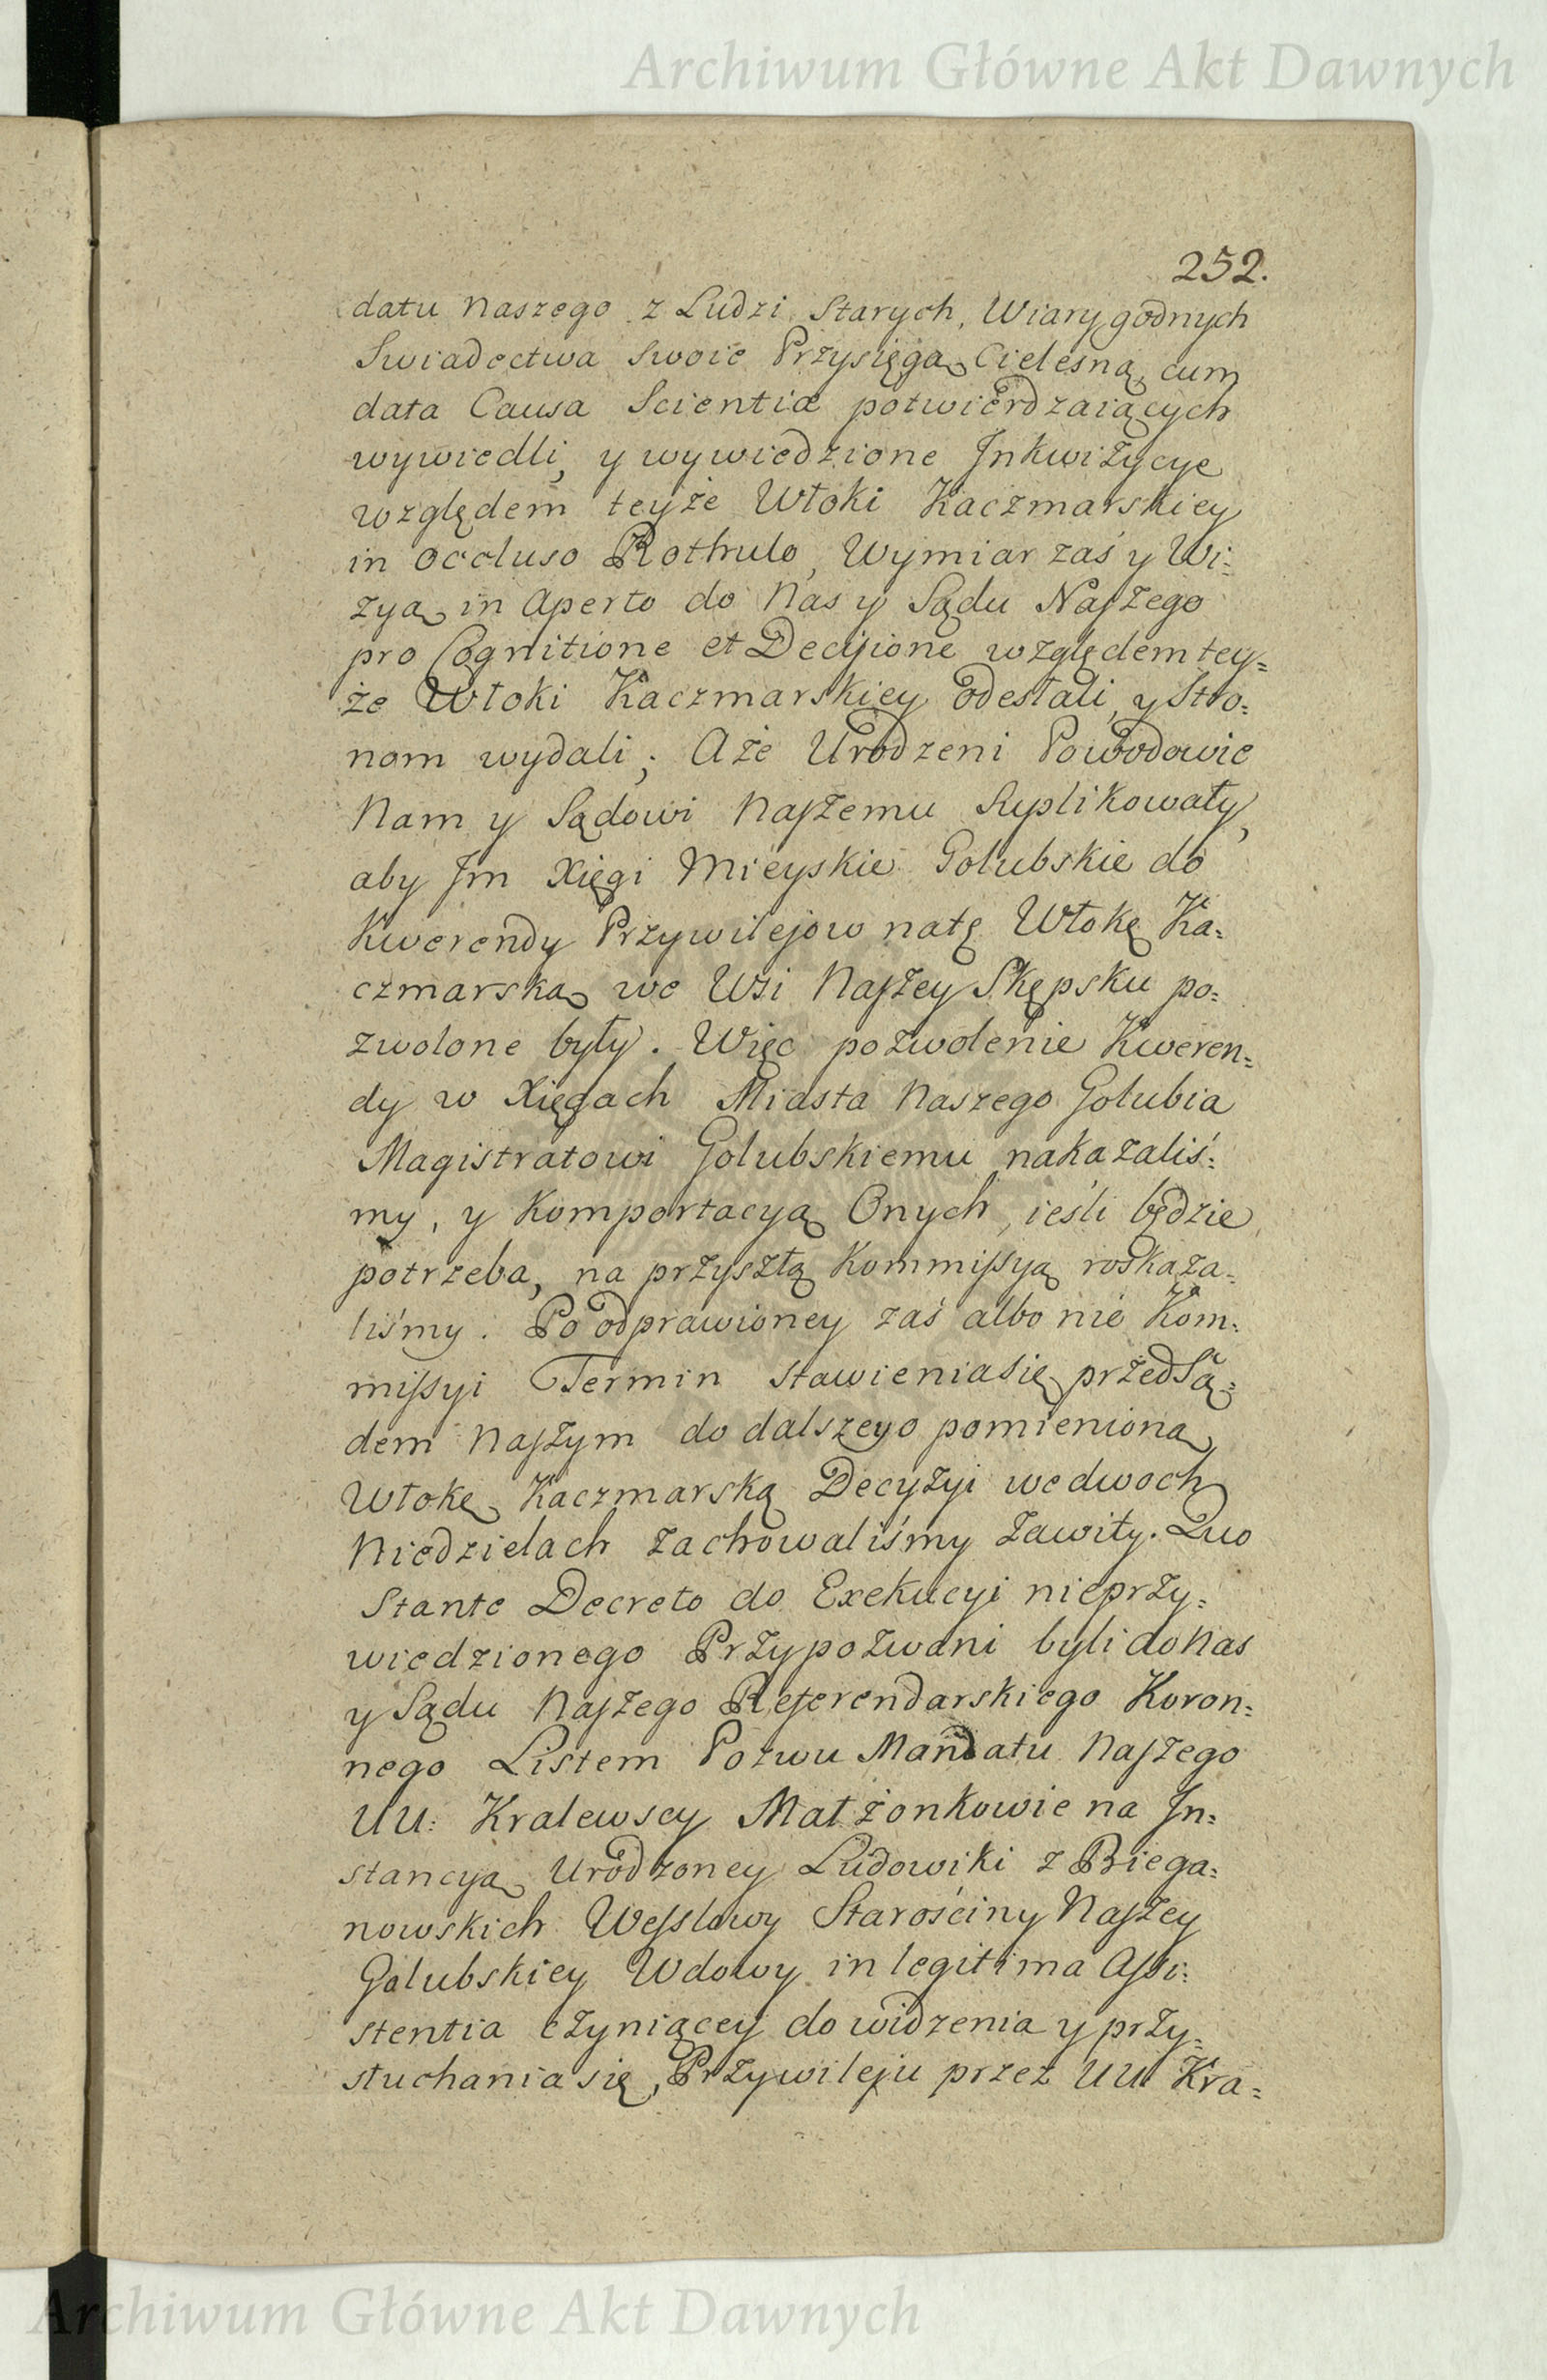 Archiwum Główne Akt Dawnych
252.
datu Naszego z Ludzi Starych, Wiary godnych
Swiadectwa swoie Przysięgą Cielesną, cum
data Causa Scientiæ potwierdzaiących
wywiedli, y wywiedzione Inkwizycye
względem teyże Włoki Kaczmarskiey
in occluso Rothulo, Wymiar zaś y Wi:
zyą in Aperto do Nas y Sądu Naszego
pro Cognitione et Decisione względem tey=
że Włoki Kaczmarskiey odesłali, y Stro:
nom wydali; Aże Urodzeni Powodowie
Nam y Sądowi Naszemu Suplikowały,
aby Im Xięgi Mieyskie Golubskie do
Kwerendy Przywilejow na tę Włokę Ka:
czmarską we Wsi Naszey Skępsku po:
zwolone były. Więc pozwolenie Kweren:
dy w Xięgach Miasta Naszego Golubia
Magistratowi Golubskiemu nakazaliś:
my, y Komportacyą Onych, ieśli będzie
potrzeba, na przyszłą Kommissyą roskaza:
liśmy. Po odprawioney zaś albo nie Kom:
missyi Termin stawienia się przed Są:
dem Naszym do dalszego pomienioną
Włokę Kaczmarską Decyzyi we dwoch
Niedzielach zachowaliśmy zawity. Quo
stante Decreto do Exekucyi nieprzy:
wiedzionego Przypozwani byli do Nas
y Sądu Naszego Referendarskiego Koron:
nego Listem Pozwu Mandatu Naszego
UU: Kralewscy Małżonkowie na In:
stancyą Urodzoney Ludowiki z Biega:
nowskich Wesslowy Starościny Naszey
Golubskiey Wdowy in legitima Assi:
stentia czyniącey do widzenia y przy:
słuchania się, Przywileju przez UU Kra:
Archiwum Główne Akt Dawnych